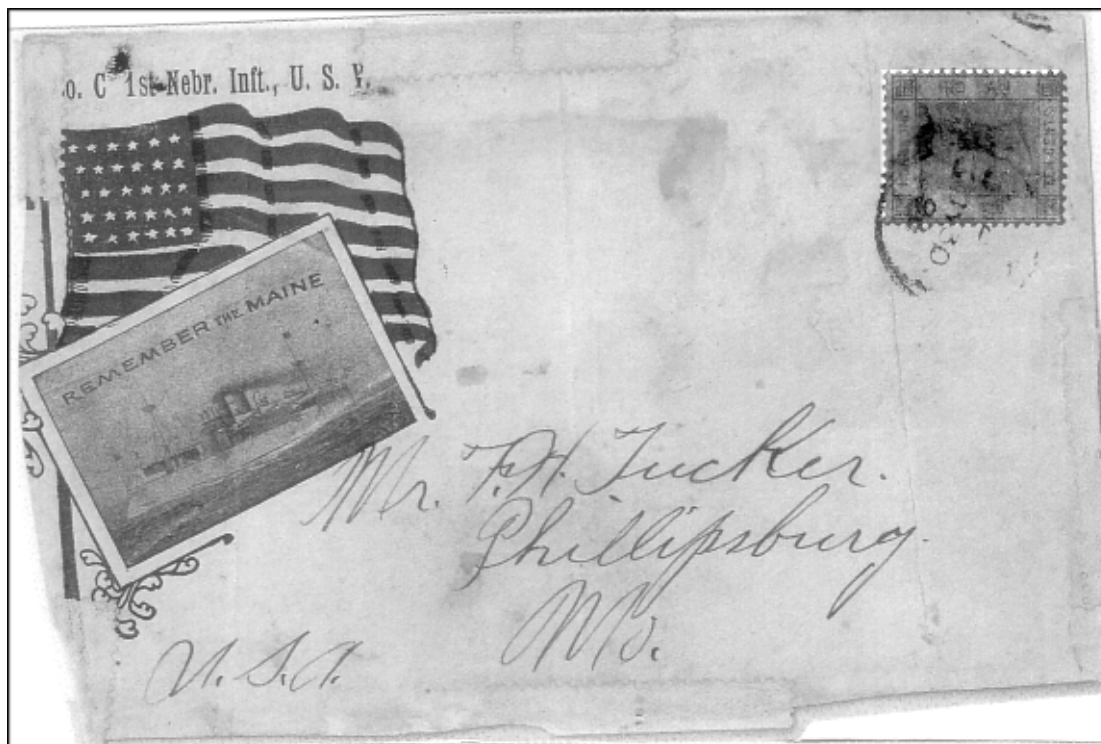 o. C 1st Nebr. Inft., U. S. V.
REMEMBER THE MAINE
Mr. F. H. Tucker.
Phillipsburg.
Mo.
U. S. A.